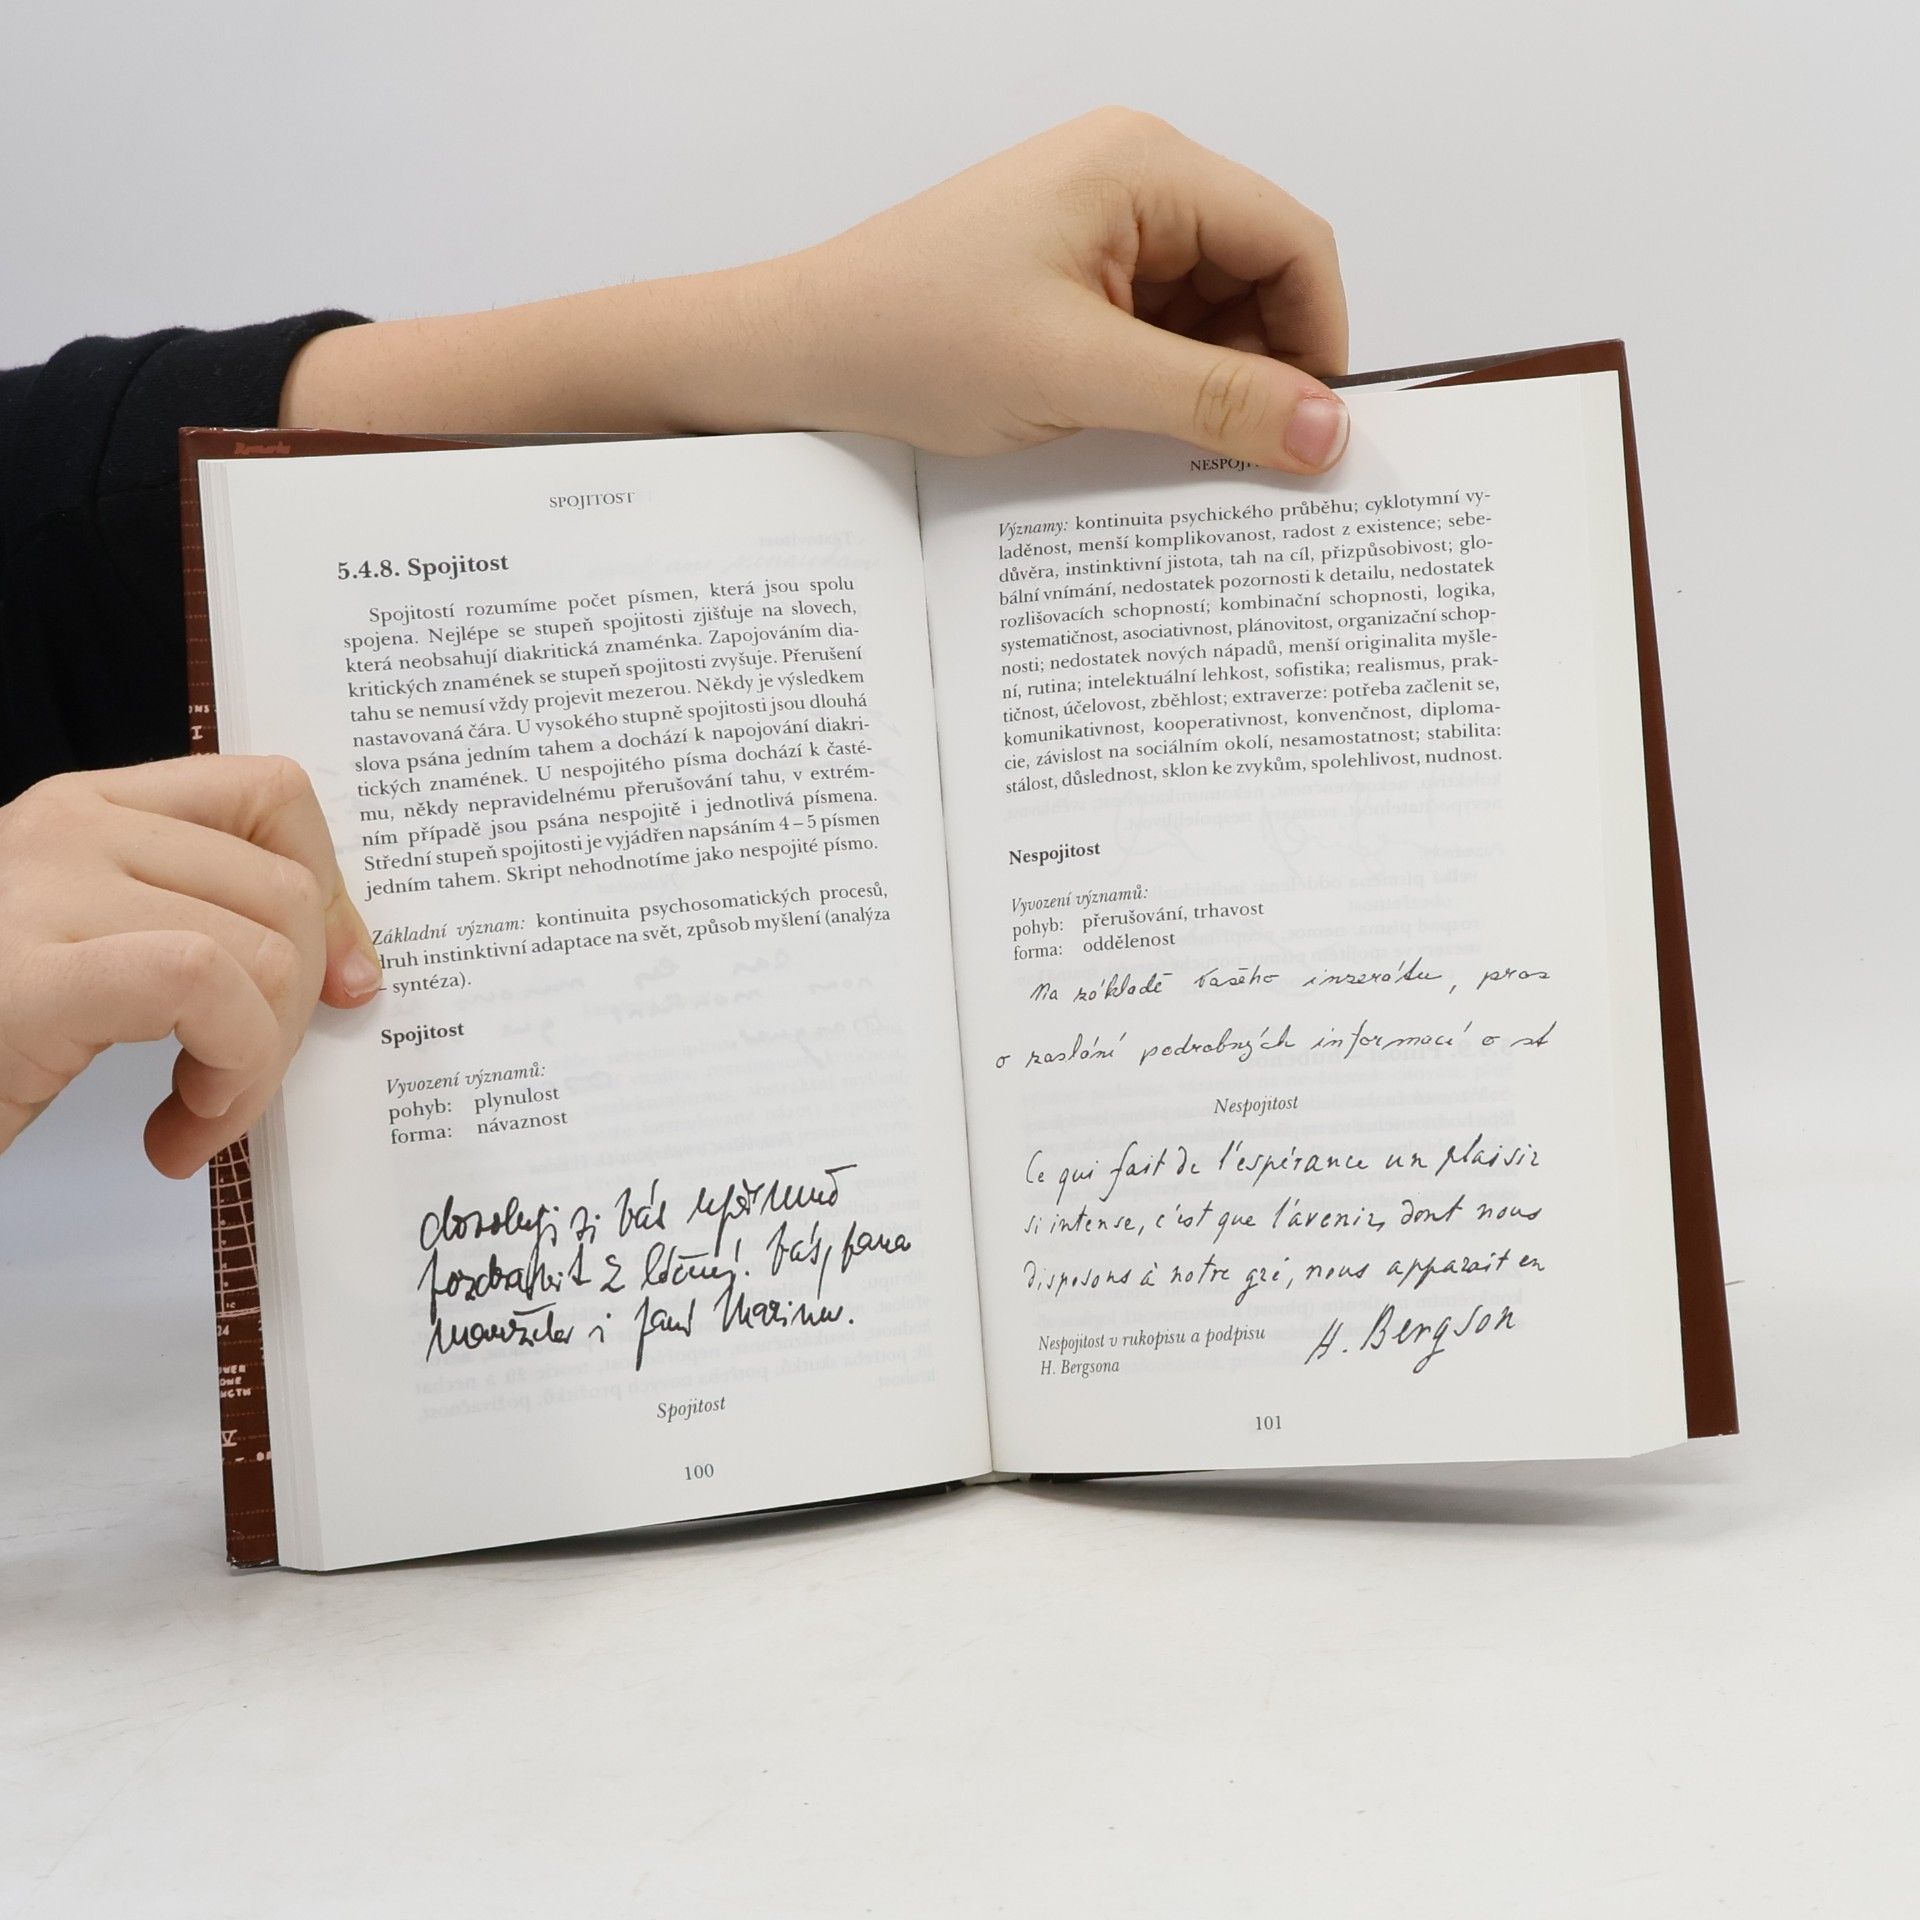 SPOJITOST
5.4.8. Spojitost
Spojitostí rozumíme počet písmen, která jsou spolu
spojena. Nejlépe se stupeň spojitosti zjišťuje na slovech,
která neobsahují diakritická znaménka. Zapojováním dia-
kritických znamének se stupeň spojitosti zvyšuje. Přerušení
tahu se nemusí vždy projevit mezerou. Někdy je výsledkem
nastavovaná čára. U vysokého stupně spojitosti jsou dlouhá
slova psána jedním tahem a dochází k napojování diakri-
tických znamének. U nespojitého písma dochází k časté-
mu, někdy nepravidelnému přerušování tahu, v extrém-
ním případě jsou psána nespojitě i jednotlivá písmena.
Střední stupeň spojitosti je vyjádřen napsáním 4 – 5 písmen
jedním tahem. Skript nehodnotíme jako nespojité písmo.
Základní význam: kontinuita psychosomatických procesů,
druh instinktivní adaptace na svět, způsob myšlení (analýza
– syntéza).
Spojitost
Vyvození významů:
pohyb: plynulost
forma: návaznost
dovoluji si Vás upřímně
pozdravit z Váš, pana
manžela i paní
Spojitost
100
Významy: kontinuita psychického průběhu; cyklotymní vy-
laděnost, menší komplikovanost, radost z existence; sebe-
důvěra, instinktivní jistota, tah na cíl, přizpůsobivost; glo-
bální vnímání, nedostatek pozornosti k detailu, nedostatek
rozlišovacích schopností; kombinační schopnosti, logika,
systematičnost, asociativnost, plánovitost, organizační schop-
nosti; nedostatek nových nápadů, menší originalita myšle-
ní, rutina; intelektuální lehkost, sofistika; realismus, prak-
tičnost, účelovost, zběhlost; extraverze: potřeba začlenit se,
komunikativnost, kooperativnost, konvenčnost, diploma-
cie, závislost na sociálním okolí, nesamostatnost; stabilita:
stálost, důslednost, sklon ke zvykům, spolehlivost, nudnost.
Nespojitost
Vyvození významů:
pohyb: přerušování, trhavost
forma: oddělenost
Na základě Vašeho inzerátu, pros
o zaslání podrobných informací o st
Nespojitost
Ce qui fait de l'espérance un plaisir
si intense, c'est que l'avenir, dont nous
disposons à notre gré, nous apparaît en
H. Bergson
Nespojitost v rukopisu a podpisu
H. Bergsona
101